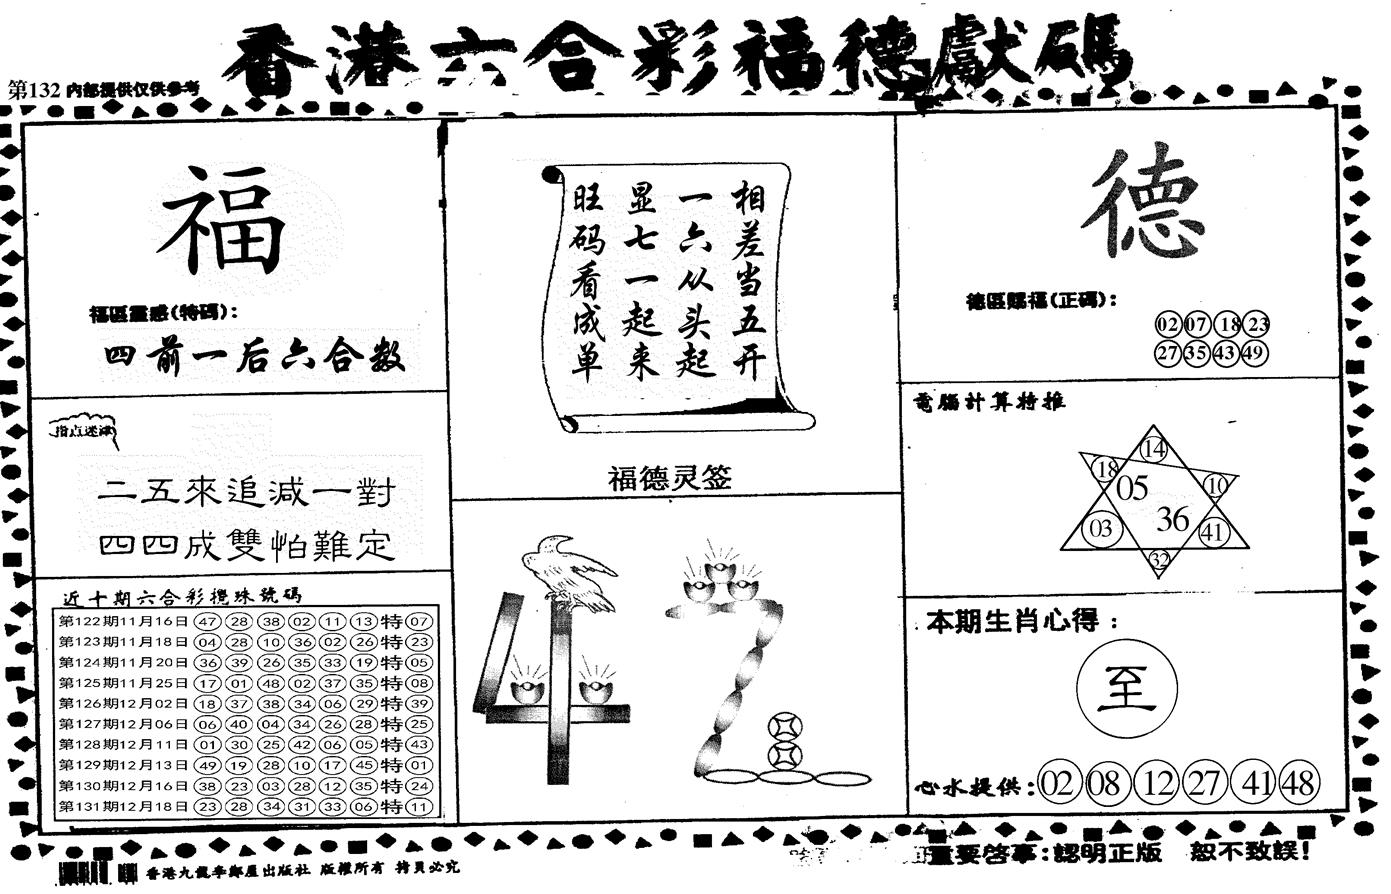 香港六合彩福德獻碼
第132 内部提供仅供参考
福
福區靈感(特碼):
四前一后六合数
指点迷津
二五來追減一對
四四成雙怕難定
近十期六合彩攪珠號碼
第122期11月16日 47 28 38 02 11 13 特 07
第123期11月18日 04 28 10 36 02 26 特 23
第124期11月20日 36 39 26 35 33 19 特 05
第125期11月25日 17 01 48 02 37 35 特 08
第126期12月02日 18 37 38 34 06 29 特 39
第127期12月06日 06 40 04 34 26 28 特 25
第128期12月11日 01 30 25 42 06 05 特 43
第129期12月13日 49 19 28 10 17 45 特 01
第130期12月16日 38 23 03 28 12 35 特 24
第131期12月18日 23 28 34 31 33 06 特 11
相差当五开
一六从头起
显七一起来
旺码看成单
福德灵签
德
德區賜福(正碼):
02 07 18 23
27 35 43 49
電腦計算特推
14
18
05
10
36
03
41
32
本期生肖心得:
至
心水提供:02 08 12 27 41 48
香港九龍 出版社 版權所有 拷貝必究
重要啓事:認明正版 恕不致誤!